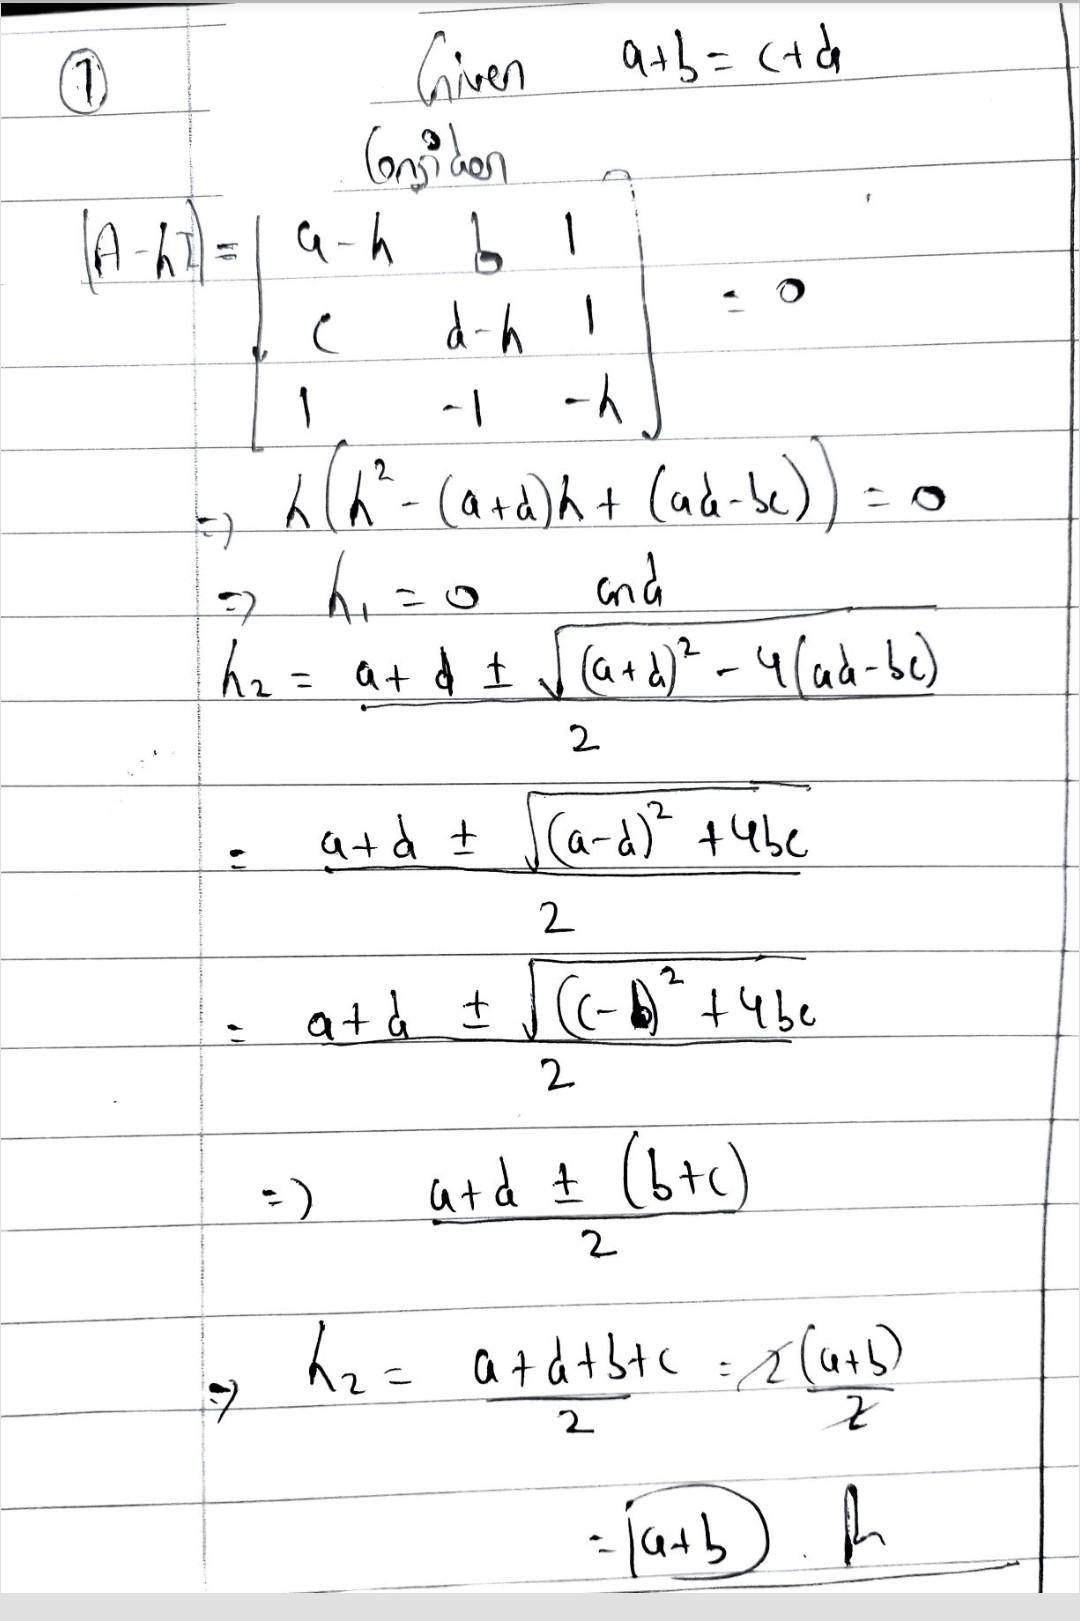 ① Given a+b = c+d
Consider
|A-hI| = | a-h b 1
c d-h 1
1 -1 -h | = 0
=) h(h² - (a+d)h + (ad-bc)) = 0
=) h₁ = 0 and
h₂ = a+d ± √(a+d)² - 4(ad-bc)
2
= a+d ± √(a-d)² + 4bc
2
= a+d ± √(c-b)² + 4bc
2
=) a+d ± (b+c)
2
=) h₂ = a+d+b+c = 2(a+b)
2 2
= a+b